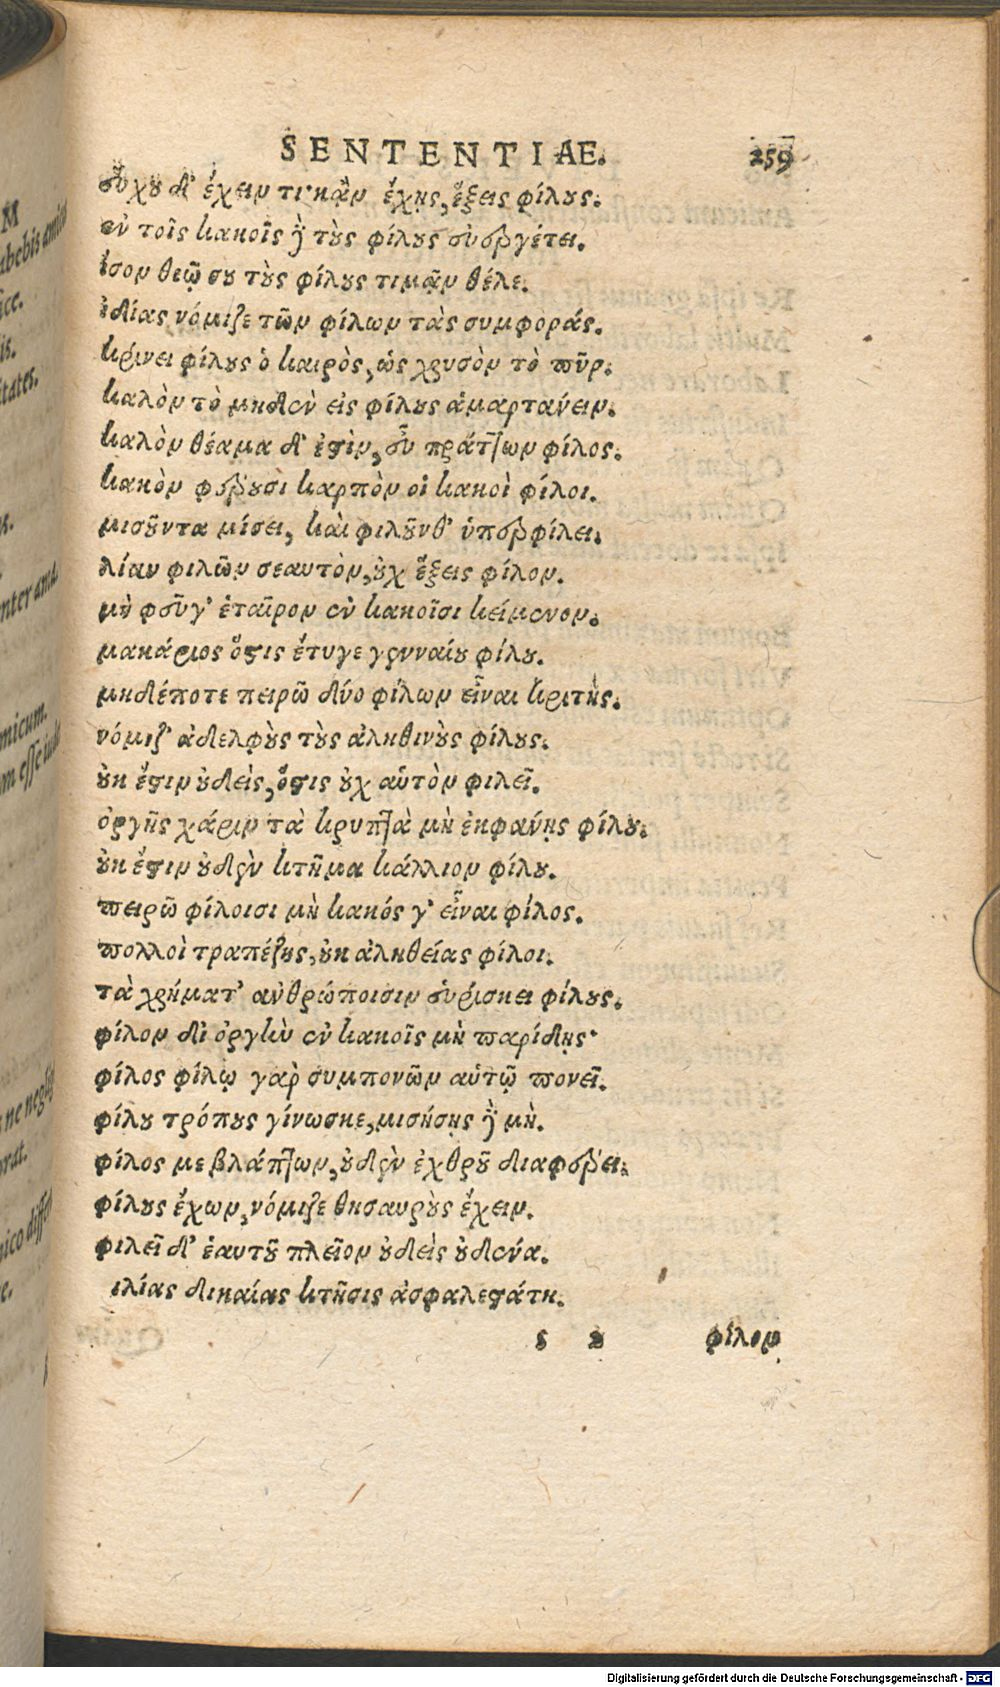 SENTENTIAE. 259
εὔχου δ' ἔχειν τι· κἂν ἔχῃς, ἕξεις φίλους.
ἐν τοῖς κακοῖς δὲ τοὺς φίλους εὐεργέτει.
ἴσον θεῷ σου τοὺς φίλους τιμᾷν θέλε.
ἰδίας νόμιζε τῶν φίλων τὰς συμφοράς.
κρίνει φίλους ὁ καιρὸς, ὡς χρυσὸν τὸ πῦρ.
καλὸν τὸ μηδὲν εἰς φίλους ἁμαρτάνειν.
καλὸν θέαμα δ' ἐστὶν, εὖ πράττων φίλος.
κακὸν φέρουσι καρπὸν οἱ κακοὶ φίλοι.
μισοῦντα μίσει, καὶ φιλοῦνθ' ὑπερφίλει.
λίαν φιλῶν σεαυτὸν, οὐχ ἕξεις φίλον.
μὴ φεῦγ' ἑταῖρον ἐν κακοῖσι κείμενον.
μακάριος ὅστις ἔτυγε γενναίου φίλου.
μηδέποτε πειρῶ δύο φίλων εἶναι κριτής.
νόμιζ' ἀδελφοὺς τοὺς ἀληθινοὺς φίλους.
οὐκ ἔστιν οὐδεὶς, ὅστις οὐχ αὑτὸν φιλεῖ.
ὀργῆς χάριν τὰ κρυπτὰ μὴ ἐκφάνῃς φίλου.
οὐκ ἔστιν οὐδὲν κτῆμα κάλλιον φίλου.
πειρῶ φίλοισι μὴ κακός γ' εἶναι φίλος.
πολλοὶ τραπέζης, οὐκ ἀληθείας φίλοι.
τὰ χρήματ' ἀνθρώποισιν εὑρίσκει φίλους.
φίλον δι' ὀργὴν ἐν κακοῖς μὴ παρίδῃς·
φίλος φίλῳ γὰρ συμπονῶν αὑτῷ πονεῖ.
φίλου τρόπους γίνωσκε, μισήσῃς δὲ μή.
φίλος με βλάπτων, οὐδὲν ἐχθροῦ διαφέρει.
φίλους ἔχων, νόμιζε θησαυροὺς ἔχειν.
φιλεῖ δ' ἑαυτοῦ πλεῖον οὐδεὶς οὐδένα.
ιλίας δικαίας κτῆσις ἀσφαλεστάτη.
s 2 φίλον
Digitalisierung gefördert durch die Deutsche Forschungsgemeinschaft - DFG